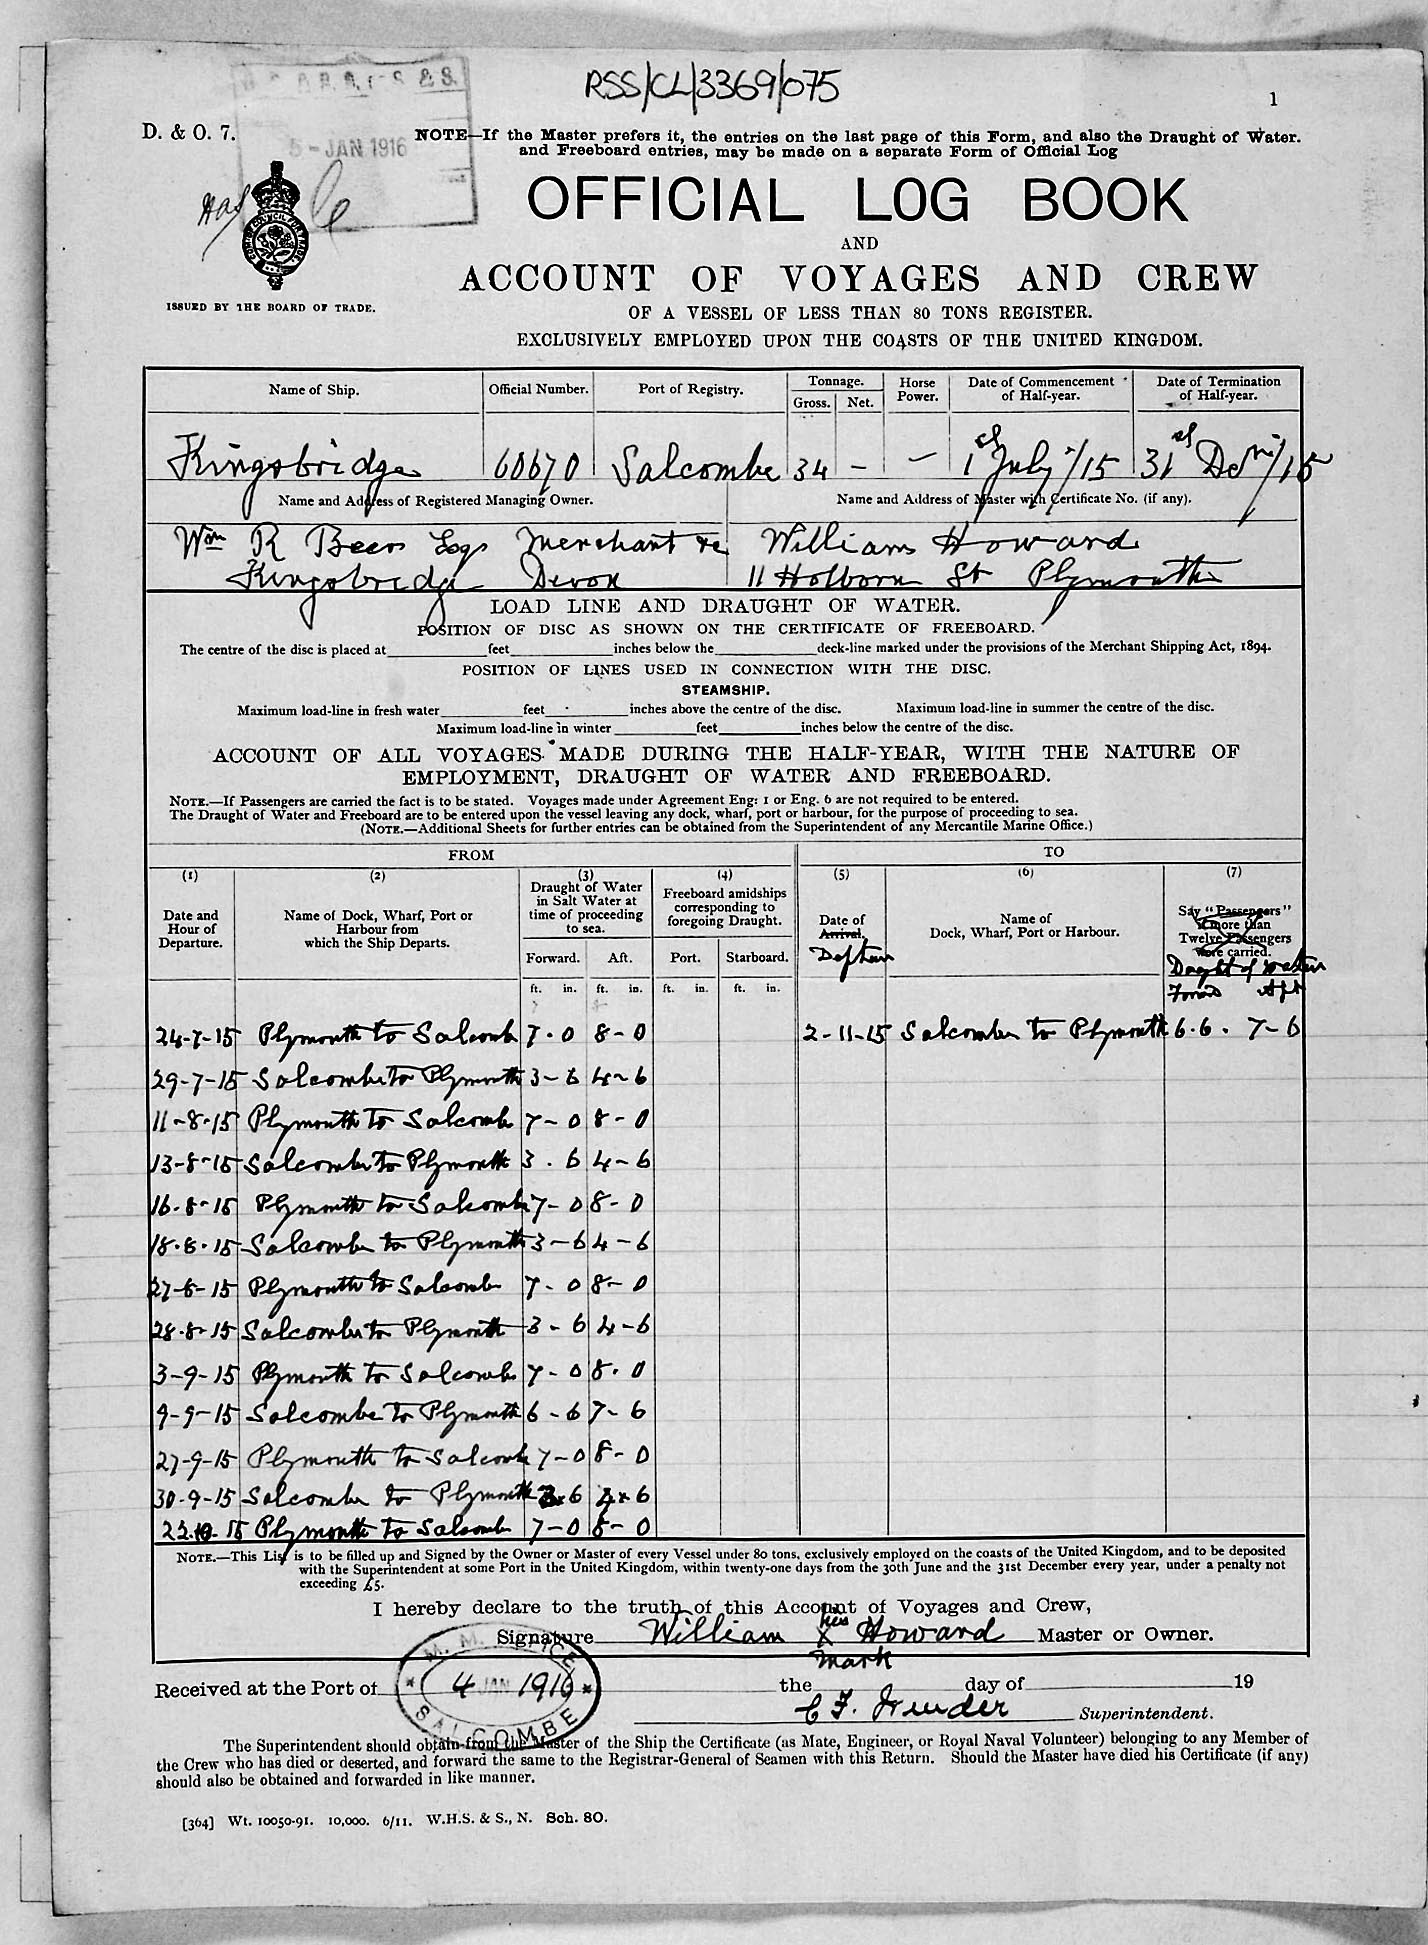 RSS/CL/3369/075
1
D. & O. 7.
5-JAN 1916
NOTE—If the Master prefers it, the entries on the last page of this Form, and also the Draught of Water.
and Freeboard entries, may be made on a separate Form of Official Log
OFFICIAL LOG BOOK
AND
ACCOUNT OF VOYAGES AND CREW
ISSUED BY THE BOARD OF TRADE.
OF A VESSEL OF LESS THAN 80 TONS REGISTER.
EXCLUSIVELY EMPLOYED UPON THE COASTS OF THE UNITED KINGDOM.
Name of Ship. Official Number. Port of Registry. Tonnage. Gross. Net. Horse Power. Date of Commencement of Half-year. Date of Termination of Half-year.
Kingsbridge 60670 Salcombe 34 – – 1st July/15 31st Decr/15
Name and Address of Registered Managing Owner. Name and Address of Master with Certificate No. (if any).
Wm R Beer Esqr Merchant &c William Howard
Kingsbridge Devon 11 Holborn St Plymouth
LOAD LINE AND DRAUGHT OF WATER.
POSITION OF DISC AS SHOWN ON THE CERTIFICATE OF FREEBOARD.
The centre of the disc is placed at feet inches below the deck-line marked under the provisions of the Merchant Shipping Act, 1894.
POSITION OF LINES USED IN CONNECTION WITH THE DISC.
STEAMSHIP.
Maximum load-line in fresh water feet inches above the centre of the disc. Maximum load-line in summer the centre of the disc.
Maximum load-line in winter feet inches below the centre of the disc.
ACCOUNT OF ALL VOYAGES MADE DURING THE HALF-YEAR, WITH THE NATURE OF
EMPLOYMENT, DRAUGHT OF WATER AND FREEBOARD.
NOTE.—If Passengers are carried the fact is to be stated. Voyages made under Agreement Eng: 1 or Eng. 6 are not required to be entered.
The Draught of Water and Freeboard are to be entered upon the vessel leaving any dock, wharf, port or harbour, for the purpose of proceeding to sea.
(NOTE.—Additional Sheets for further entries can be obtained from the Superintendent of any Mercantile Marine Office.)
FROM TO
(1) (2) (3) (4) (5) (6) (7)
Date and Hour of Departure.
Name of Dock, Wharf, Port or Harbour from which the Ship Departs.
Draught of Water in Salt Water at time of proceeding to sea.
Freeboard amidships corresponding to foregoing Draught.
Date of Arrival.
Name of Dock, Wharf, Port or Harbour.
Say "Passengers" if more than Twelve Passengers were carried.
Forward. Aft. Port. Starboard.
ft. in. ft. in. ft. in. ft. in.
Draght of Water
Forwd Aft
24-7-15 Plymouth to Salcombe 7-0 8-0 2-11-15 Salcombe to Plymouth 6.6. 7-6
29-7-15 Salcombe to Plymouth 3-6 4-6
11-8-15 Plymouth to Salcombe 7-0 8-0
13-8-15 Salcombe to Plymouth 3.6 4-6
16-8-15 Plymouth to Salcombe 7-0 8-0
18.8.15 Salcombe to Plymouth 3-6 4-6
27-8-15 Plymouth to Salcombe 7-0 8-0
28-8-15 Salcombe to Plymouth 3-6 4-6
3-9-15 Plymouth to Salcombe 7-0 8.0
9-9-15 Salcombe to Plymouth 6-6 7-6
27-9-15 Plymouth to Salcombe 7-0 8-0
30-9-15 Salcombe to Plymouth 3-6 4-6
22.10.15 Plymouth to Salcombe 7-0 8-0
NOTE.—This List is to be filled up and Signed by the Owner or Master of every Vessel under 80 tons, exclusively employed on the coasts of the United Kingdom, and to be deposited
with the Superintendent at some Port in the United Kingdom, within twenty-one days from the 30th June and the 31st December every year, under a penalty not
exceeding £5.
I hereby declare to the truth of this Account of Voyages and Crew,
Signature William his X mark Howard Master or Owner.
Received at the Port of the day of 19
M. M. OFFICE
4 JAN 1916
SALCOMBE
Superintendent.
The Superintendent should obtain from the Master of the Ship the Certificate (as Mate, Engineer, or Royal Naval Volunteer) belonging to any Member of
the Crew who has died or deserted, and forward the same to the Registrar-General of Seamen with this Return. Should the Master have died his Certificate (if any)
should also be obtained and forwarded in like manner.
[364] Wt. 10050-91. 10,000. 6/11. W.H.S. & S., N. Sch. 80.